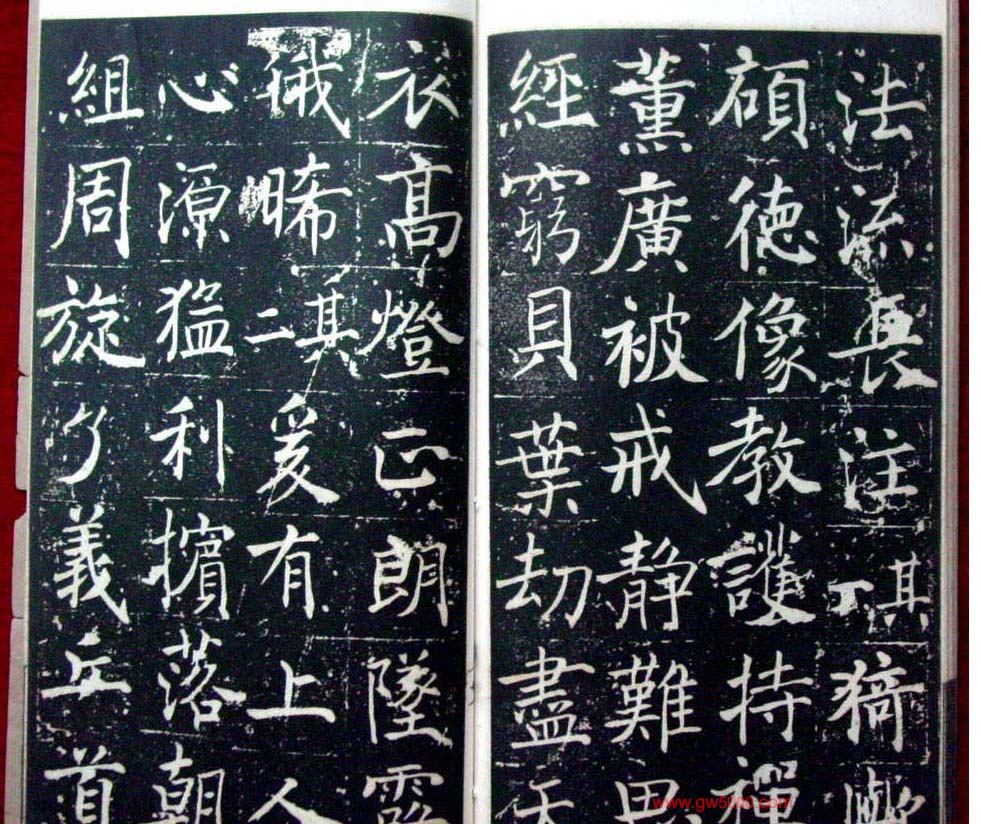 法流長注其一猗歟
碩德像教護持禪
薰廣被戒静難思
經窮貝葉劫盡天
衣高燈正朗墜露
俄晞其二爰有上人
心源猛利擯落朝
組周旋了義丘道
www.gw5000.com